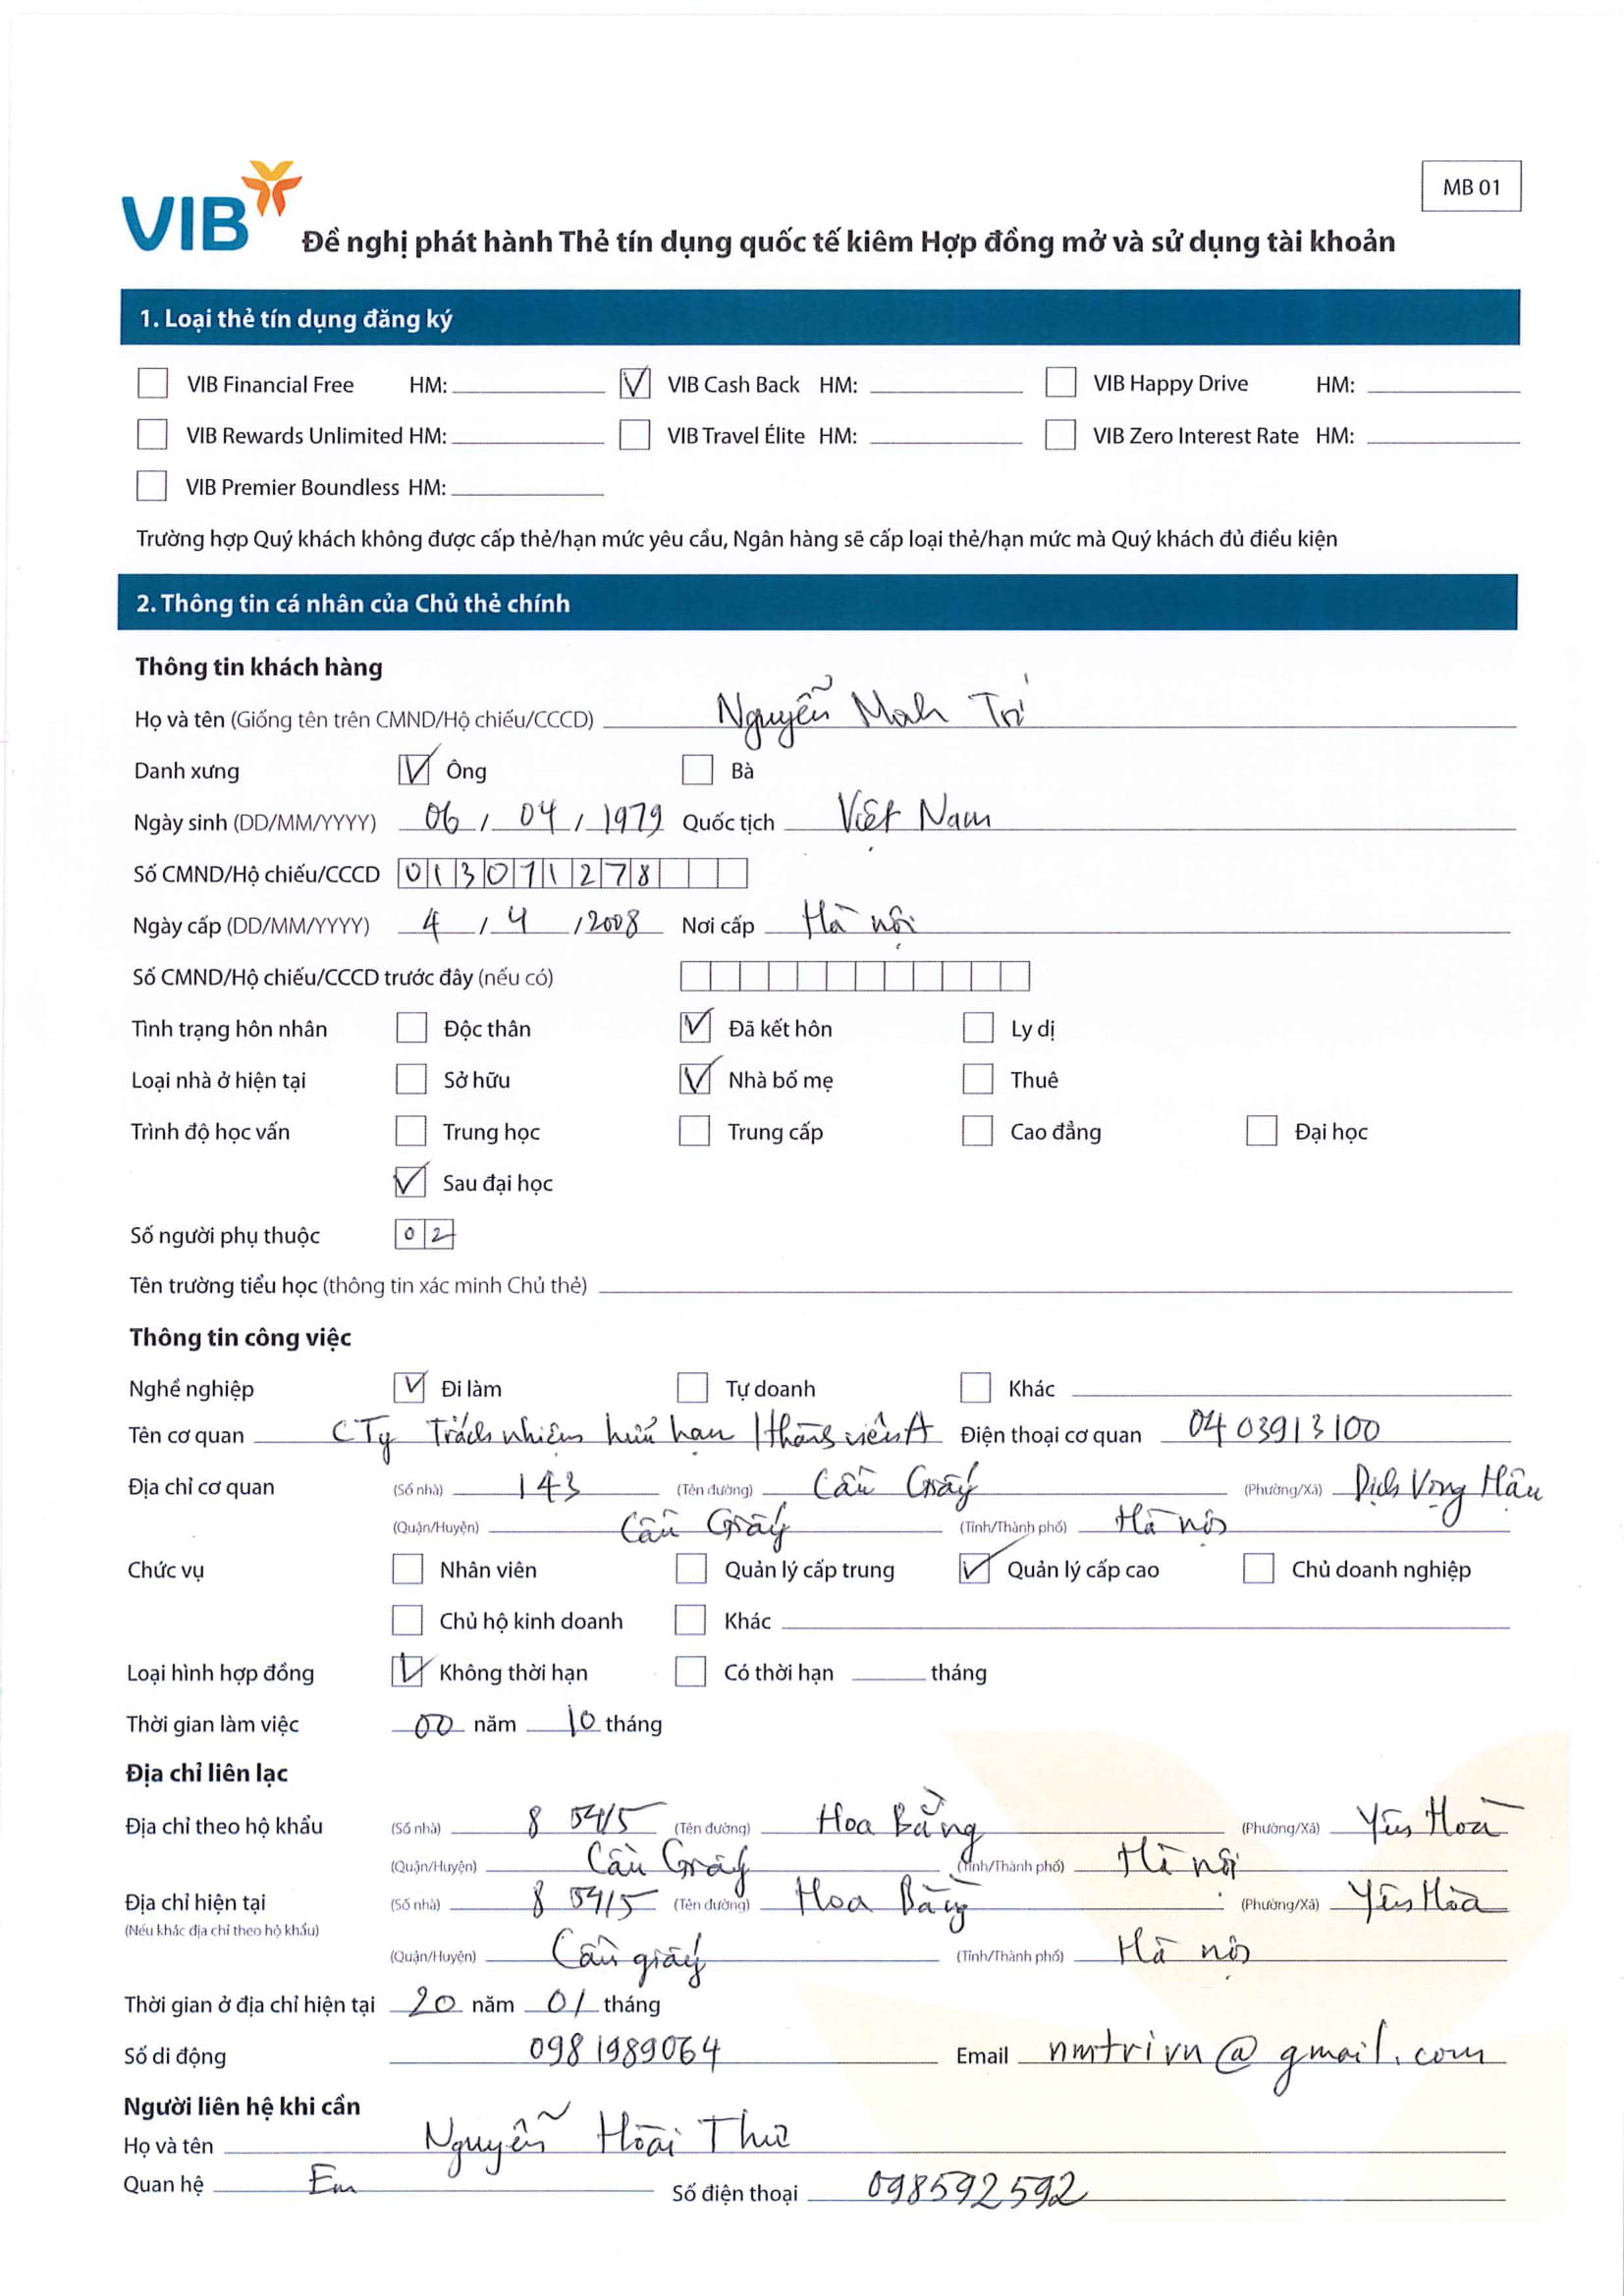 VIB
MB 01
Đề nghị phát hành Thẻ tín dụng quốc tế kiêm Hợp đồng mở và sử dụng tài khoản
1. Loại thẻ tín dụng đăng ký
VIB Financial Free HM: VIB Cash Back HM: VIB Happy Drive HM:
VIB Rewards Unlimited HM: VIB Travel Élite HM: VIB Zero Interest Rate HM:
VIB Premier Boundless HM:
Trường hợp Quý khách không được cấp thẻ/hạn mức yêu cầu, Ngân hàng sẽ cấp loại thẻ/hạn mức mà Quý khách đủ điều kiện
2. Thông tin cá nhân của Chủ thẻ chính
Thông tin khách hàng
Họ và tên (Giống tên trên CMND/Hộ chiếu/CCCD) Nguyễn Manh Trí
Danh xưng Ông Bà
Ngày sinh (DD/MM/YYYY) 06 / 04 / 1979 Quốc tịch Việt Nam
Số CMND/Hộ chiếu/CCCD 013071278
Ngày cấp (DD/MM/YYYY) 4 / 4 / 2008 Nơi cấp Hà nội
Số CMND/Hộ chiếu/CCCD trước đây (nếu có)
Tình trạng hôn nhân Độc thân Đã kết hôn Ly dị
Loại nhà ở hiện tại Sở hữu Nhà bố mẹ Thuê
Trình độ học vấn Trung học Trung cấp Cao đẳng Đại học
Sau đại học
Số người phụ thuộc 02
Tên trường tiểu học (thông tin xác minh Chủ thẻ)
Thông tin công việc
Nghề nghiệp Đi làm Tự doanh Khác
Tên cơ quan CTy Trách nhiệm hữu hạn 1 thành viên A Điện thoại cơ quan 04 03913100
Địa chỉ cơ quan (Số nhà) 143 (Tên đường) Cầu Giấy (Phường/Xã) Dịch Vọng Hậu
(Quận/Huyện) Cầu Giấy (Tỉnh/Thành phố) Hà nội
Chức vụ Nhân viên Quản lý cấp trung Quản lý cấp cao Chủ doanh nghiệp
Chủ hộ kinh doanh Khác
Loại hình hợp đồng Không thời hạn Có thời hạn tháng
Thời gian làm việc 00 năm 10 tháng
Địa chỉ liên lạc
Địa chỉ theo hộ khẩu (Số nhà) 8 54/5 (Tên đường) Hoa Bằng (Phường/Xã) Yên Hoà
(Quận/Huyện) Cầu Giấy (Tỉnh/Thành phố) Hà nội
Địa chỉ hiện tại (Số nhà) 8 54/5 (Tên đường) Hoa Bằng (Phường/Xã) Yên Hòa
(Nếu khác địa chỉ theo hộ khẩu)
(Quận/Huyện) Cầu giấy (Tỉnh/Thành phố) Hà nội
Thời gian ở địa chỉ hiện tại 20 năm 01 tháng
Số di động 0981989064 Email nmtrivn@gmail.com
Người liên hệ khi cần
Họ và tên Nguyễn Hoài Thu
Quan hệ Em Số điện thoại 098592592